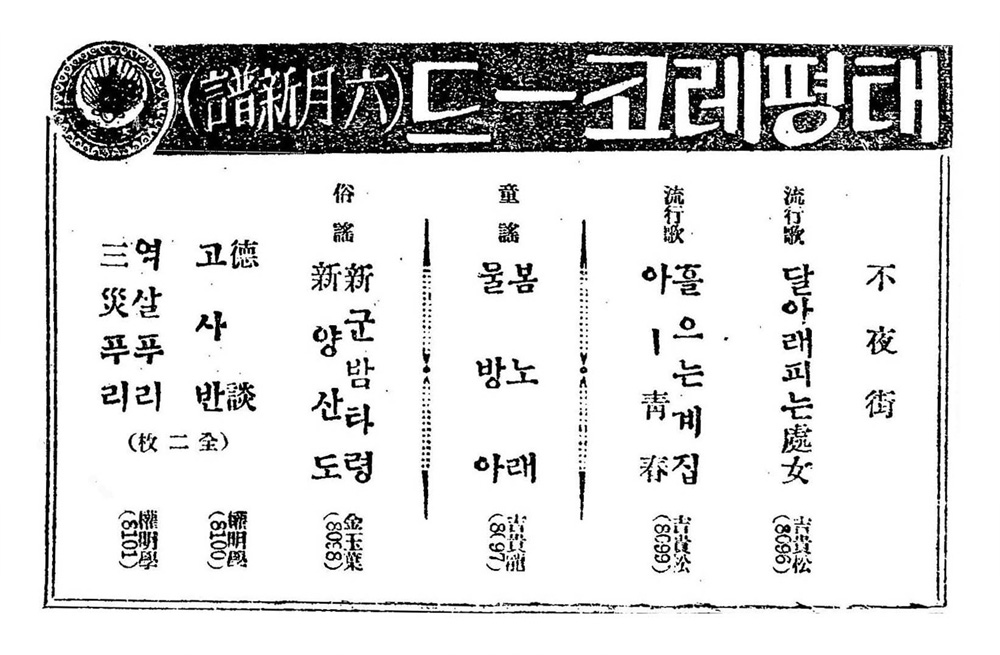 태평레코ー드(六月新譜)
流行歌
不夜街
달아래피는處女
吉貴松
(8096)
流行歌
흘으는계집
아ー靑春
吉貴松
(8099)
童謠
봄노래
물방아
吉貴龍
(8097)
俗謠
新군밤타령
新양산도
金玉葉
(8098)
德談
고사반
權明學
(8100)
역살푸리
三災푸리
(全二枚)
權明學
(8101)